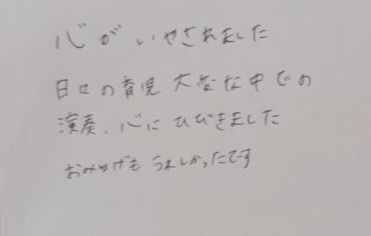 心がいやされました
日々の育児大変な中での
演奏、心にひびきました
おみやげもうれしかったです